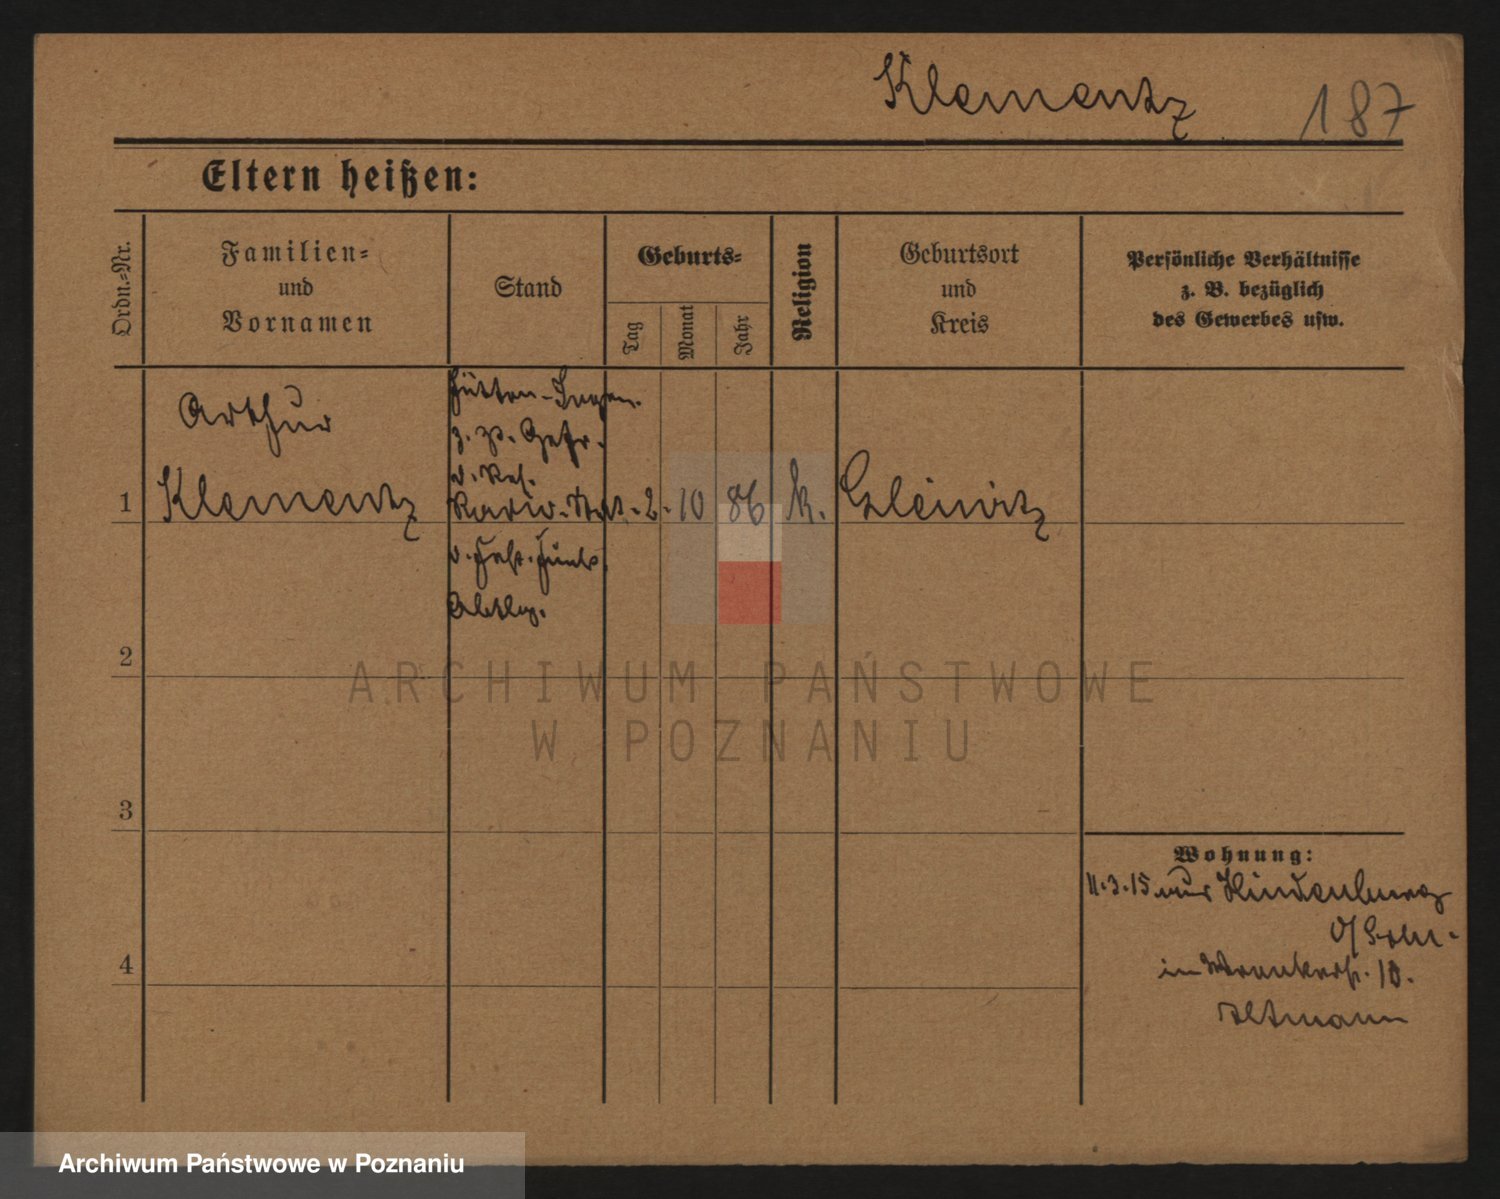 Klementz 187
Eltern heißen:
Ordn.-Nr.
Familien-
und
Vornamen
Stand
Geburts-
Tag
Monat
Jahr
Religion
Geburtsort
und
Kreis
Persönliche Verhältnisse
z. B. bezüglich
des Gewerbes usw.
Arthur
Hütten-Ingen.
z. Zt. Gefr.
d. Res.
1 Klementz 2. 10 86 k. Gleiwitz
d. Fest. Funk
Abtlg.
2
3
4
Wohnung:
11.3.15 aus Hindenburg
O/Schl.
in 10.
Altmann
ARCHIWUM PAŃSTWOWE
W POZNANIU
Archiwum Państwowe w Poznaniu